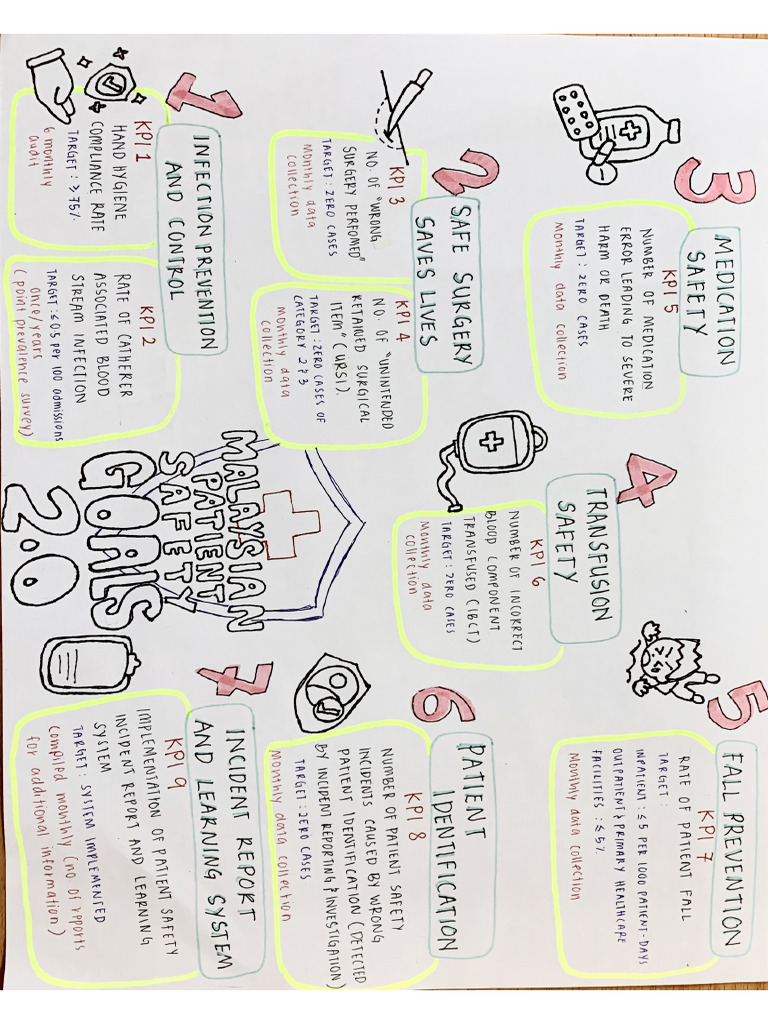 MALAYSIAN
PATIENT
SAFETY
GOALS
2.0
1
INFECTION PREVENTION
AND CONTROL
KPI 1
HAND HYGIENE
COMPLIANCE RATE
TARGET : ≥ 75%
6 monthly
audit
KPI 2
RATE OF CATHERER
ASSOCIATED BLOOD
STREAM INFECTION
TARGET : ≤ 05 per 100 admissions
once/years
(point prevalence survey)
2
SAFE SURGERY
SAVES LIVES
KPI 3
NO. OF "WRONG
SURGERY PERFOMED"
TARGET : ZERO CASES
Monthly data
collection
KPI 4
NO. OF "UNINTENDED
RETAINED SURGICAL
ITEM" (URSI).
TARGET : ZERO CASES OF
CATEGORY 2 & 3
monthly data
collection
3
MEDICATION
SAFETY
KPI 5
NUMBER OF MEDICATION
ERROR LEADING TO SEVERE
HARM OR DEATH
TARGET : ZERO CASES
Monthly data collection
4
TRANSFUSION
SAFETY
KPI 6
NUMBER OF INCORRECT
BLOOD COMPONENT
TRANSFUSED (IBCT)
TARGET : ZERO CASES
Monthly data
collection
5
FALL PREVENTION
KPI 7
RATE OF PATIENT FALL
TARGET :
INPATIENT : ≤ 5 PER 1000 PATIENT-DAYS
OUTPATIENT & PRIMARY HEALTHCARE
FACILITIES : ≤ 5%
Monthly data collection
6
PATIENT
IDENTIFICATION
KPI 8
NUMBER OF PATIENT SAFETY
INCIDENTS CAUSED BY WRONG
PATIENT IDENTIFICATION (DETECTED
BY INCIDENT REPORTING & INVESTIGATION)
TARGET : ZERO CASES
Monthly data collection
7
INCIDENT REPORT
AND LEARNING SYSTEM
KPI 9
IMPLEMENTATION OF PATIENT SAFETY
INCIDENT REPORT AND LEARNING
SYSTEM
TARGET : SYSTEM IMPLEMENTED
compiled monthly (no of reports
for additional information)